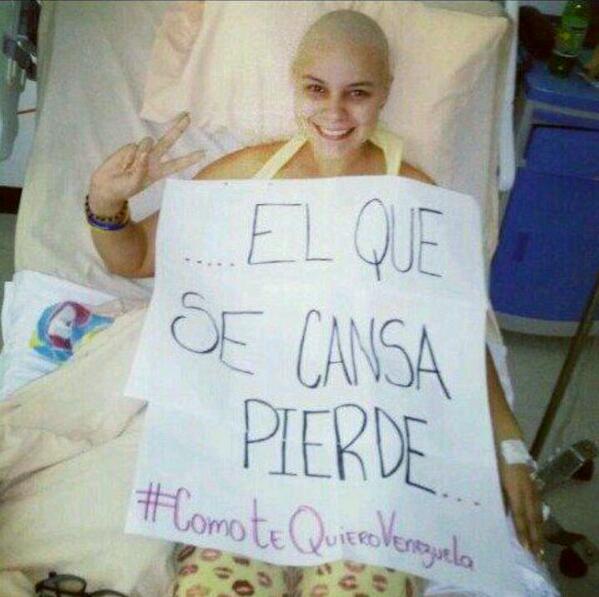 .....EL QUE
SE CANSA
PIERDE...
#ComoteQuieroVenezuela